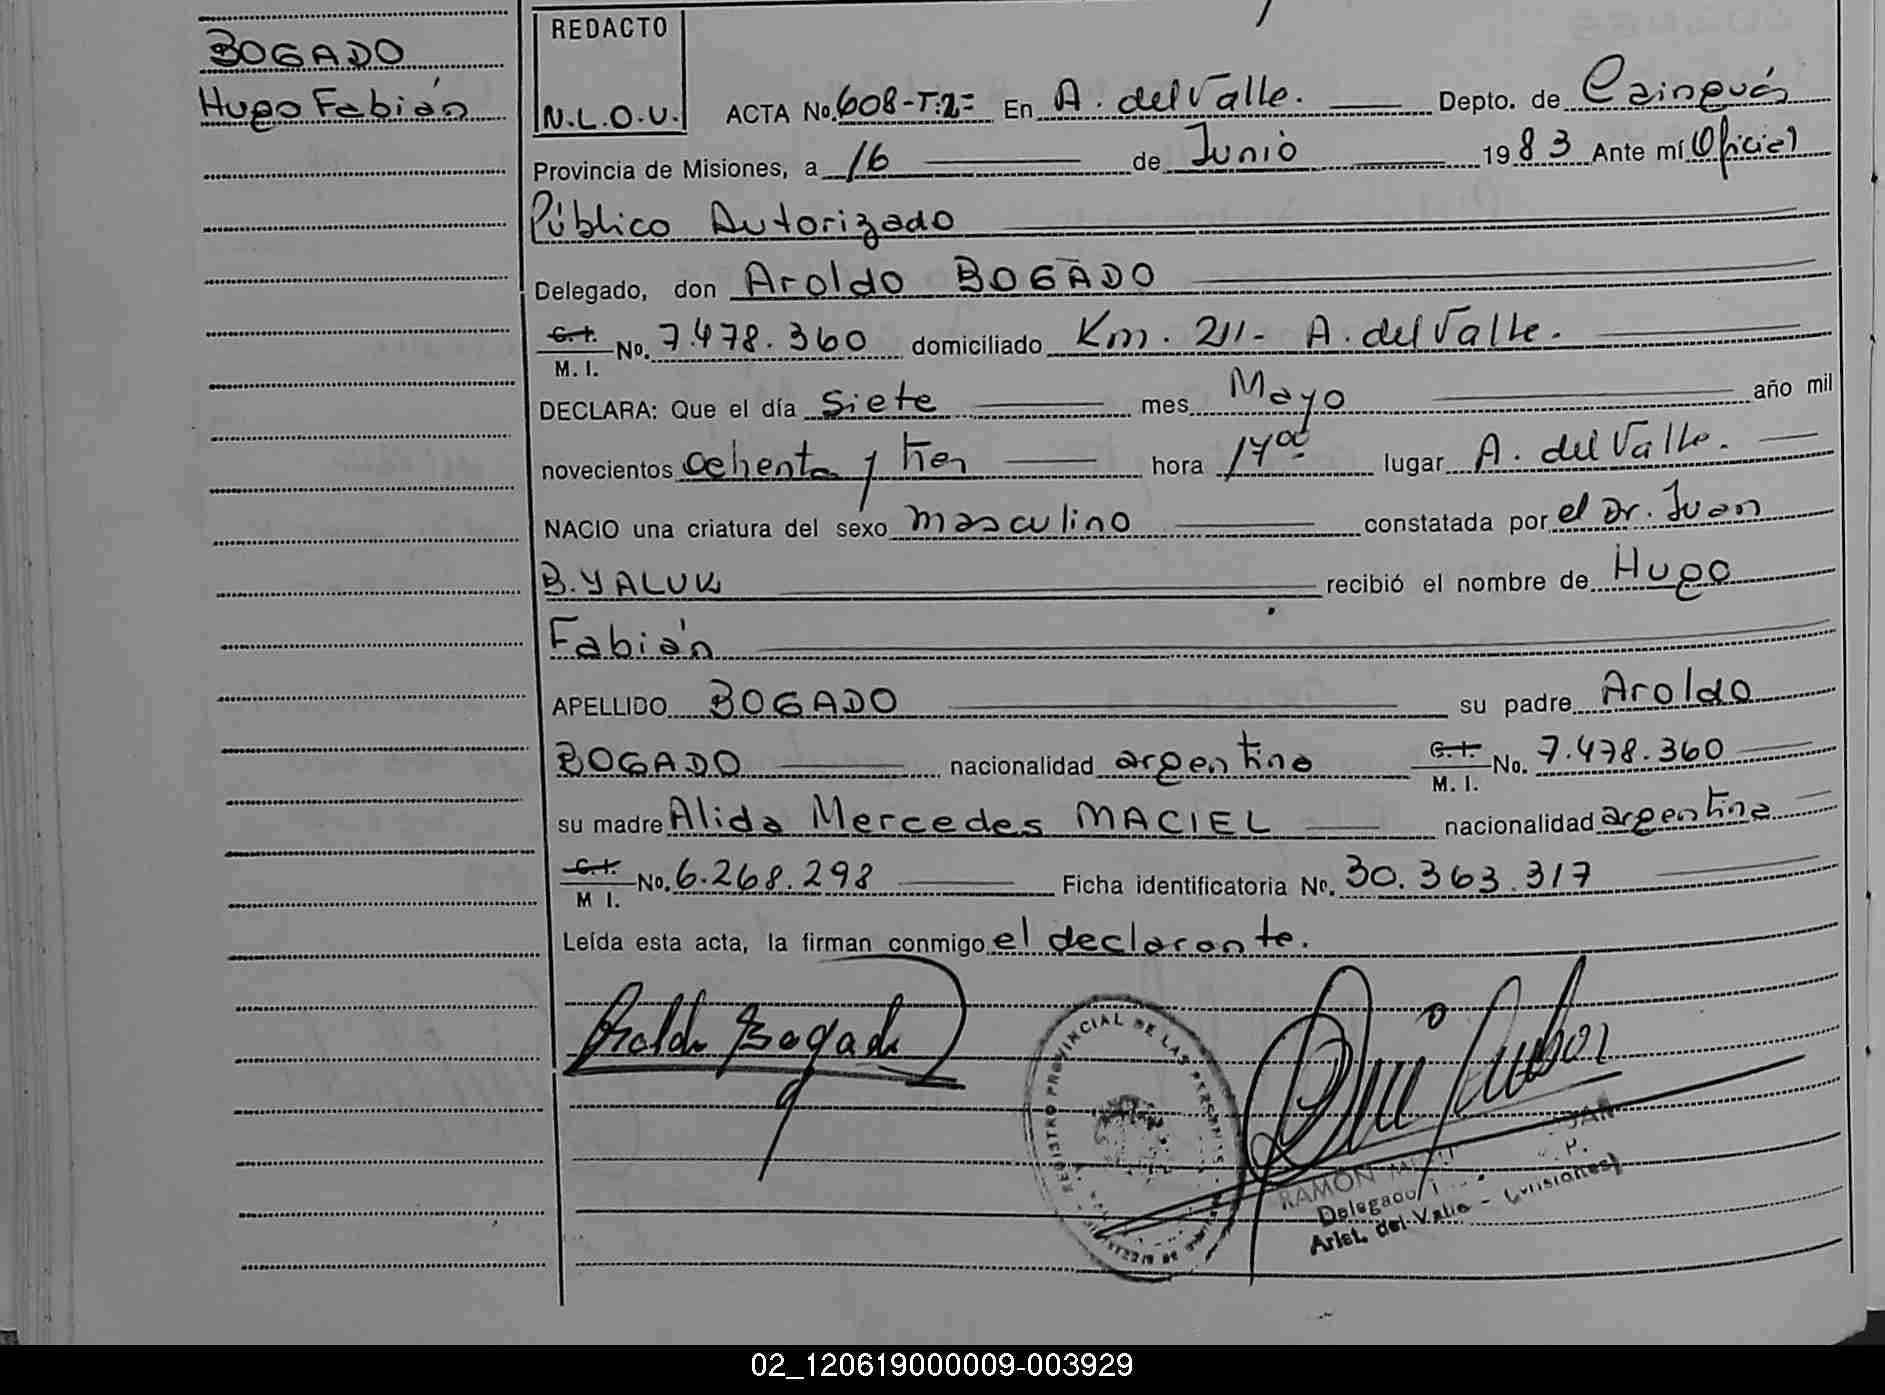 BOGADO
Hugo Fabián
REDACTO
N.L.O.U.
ACTA No. 608-T:2= En A. del Valle. Depto. de Cainguás
Provincia de Misiones, a 16 de Junio 1983 Ante mí Oficial
Público Autorizado
Delegado, don Aroldo BOGADO
C.I. M. I. No. 7.478.360 domiciliado Km. 211- A. del Valle.
DECLARA: Que el día siete mes Mayo año mil
novecientos ochenta y tres hora 17 lugar A. del Valle.
NACIO una criatura del sexo masculino constatada por el Dr. Juan
B. YALUK recibió el nombre de Hugo
Fabián
APELLIDO BOGADO su padre Aroldo
BOGADO nacionalidad argentina C.I. M. I. No. 7.478.360
su madre Alida Mercedes MACIEL nacionalidad argentina
C.I. M I. No. 6.268.298 Ficha identificatoria No. 30.363.317
Leída esta acta, la firman conmigo el declarante.
Aroldo Bogado
REGISTRO PROVINCIAL DE LAS PERSONAS
RAMON
Delegado
Arist. del Valle - (Misiones)
02_120619000009-003929